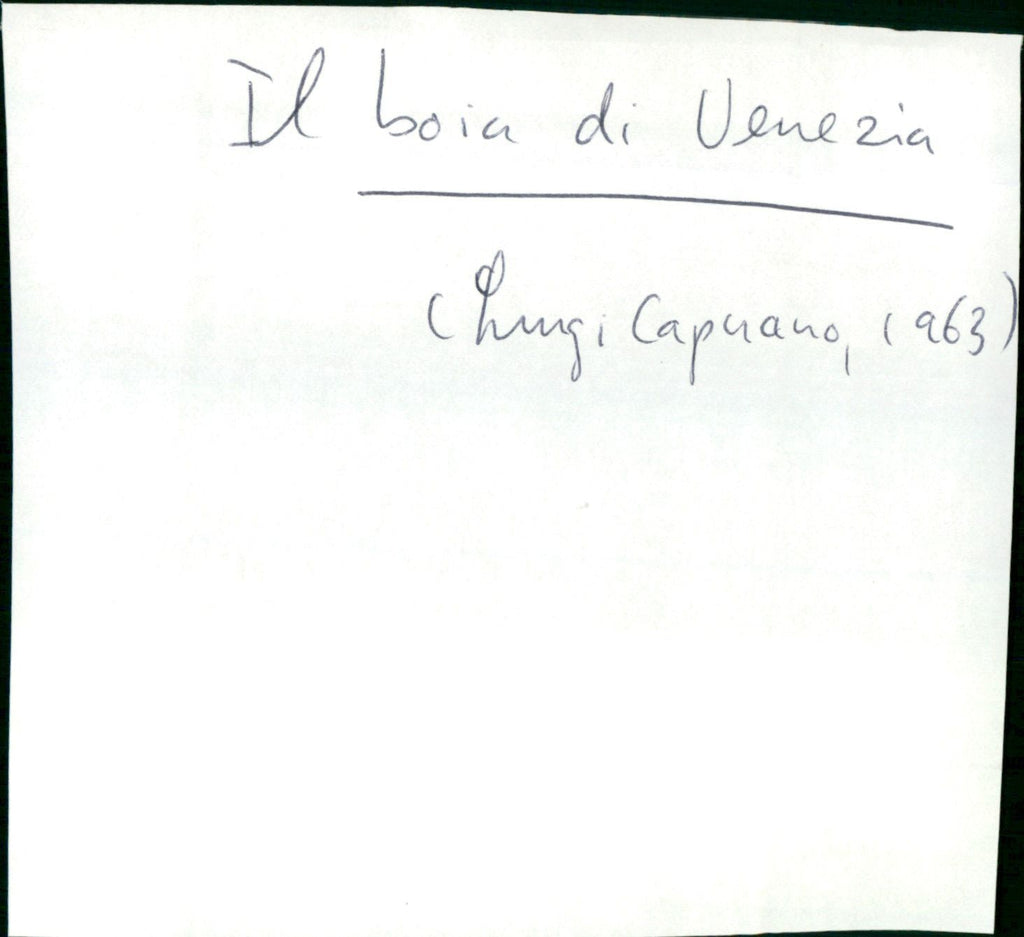 Il boia di Venezia
(Luigi Capuano, 1963)